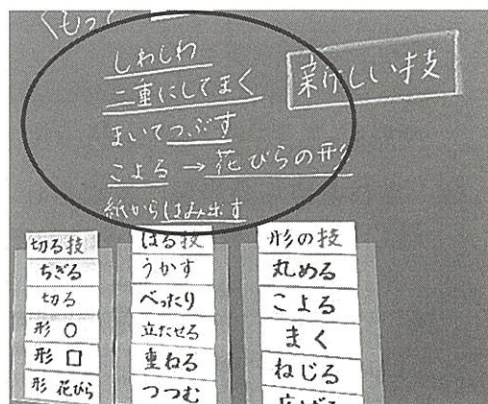 くもっと
しわしわ
二重にしてまく
まいてつぶす
こよる→花びらの形
紙からはみ出す
新しい技
切る技
ちぎる
切る
形 ○
形 □
形 花びら
はる技
うかす
べったり
立たせる
重ねる
つつむ
形の技
丸める
こよる
まく
ねじる